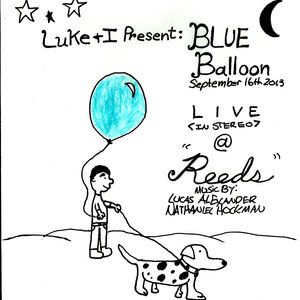 Luke + I Present: BLUE
Balloon
September 16th 2013
LIVE
<IN STEREO>
@
"Reeds"
MUSIC BY:
LUCAS ALEXANDER
NATHANIEL HOCKMAN